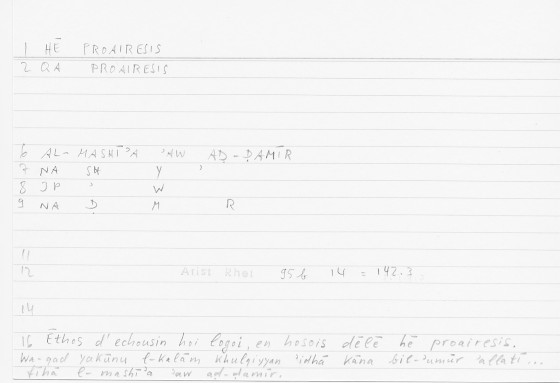 1 HĒ PROAIRESIS
2 QA PROAIRESIS
6 AL-MASHĪʾA ʾAW AḌ-ḌAMĪR
7 NA SH Y ʾ
8 JP ʾ W
9 NA Ḍ M R
11
12 Arist Rhet 95b 14 = 142.3
14
16 Ēthos d'echousin hoi logoi, en hosois dēlē hē proairesis.
Wa-qad yakūnu l-kalām khulqiyyan ʾidhā kāna bil-ʾumūr ʾallatī...
fīhā l-mashīʾa ʾaw aḍ-ḍamīr.